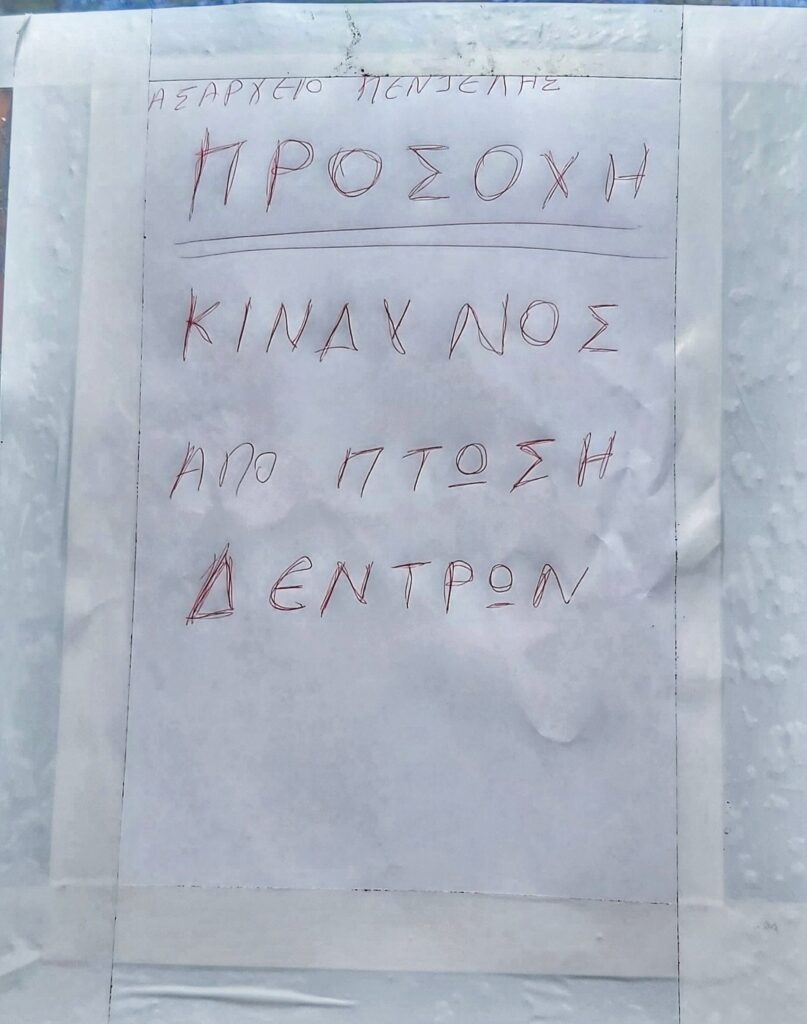 ΔΑΣΑΡΧΕΙΟ ΠΕΝΤΕΛΗΣ
ΠΡΟΣΟΧΗ
ΚΙΝΔΥΝΟΣ
ΑΠΟ ΠΤΩΣΗ
ΔΕΝΤΡΩΝ